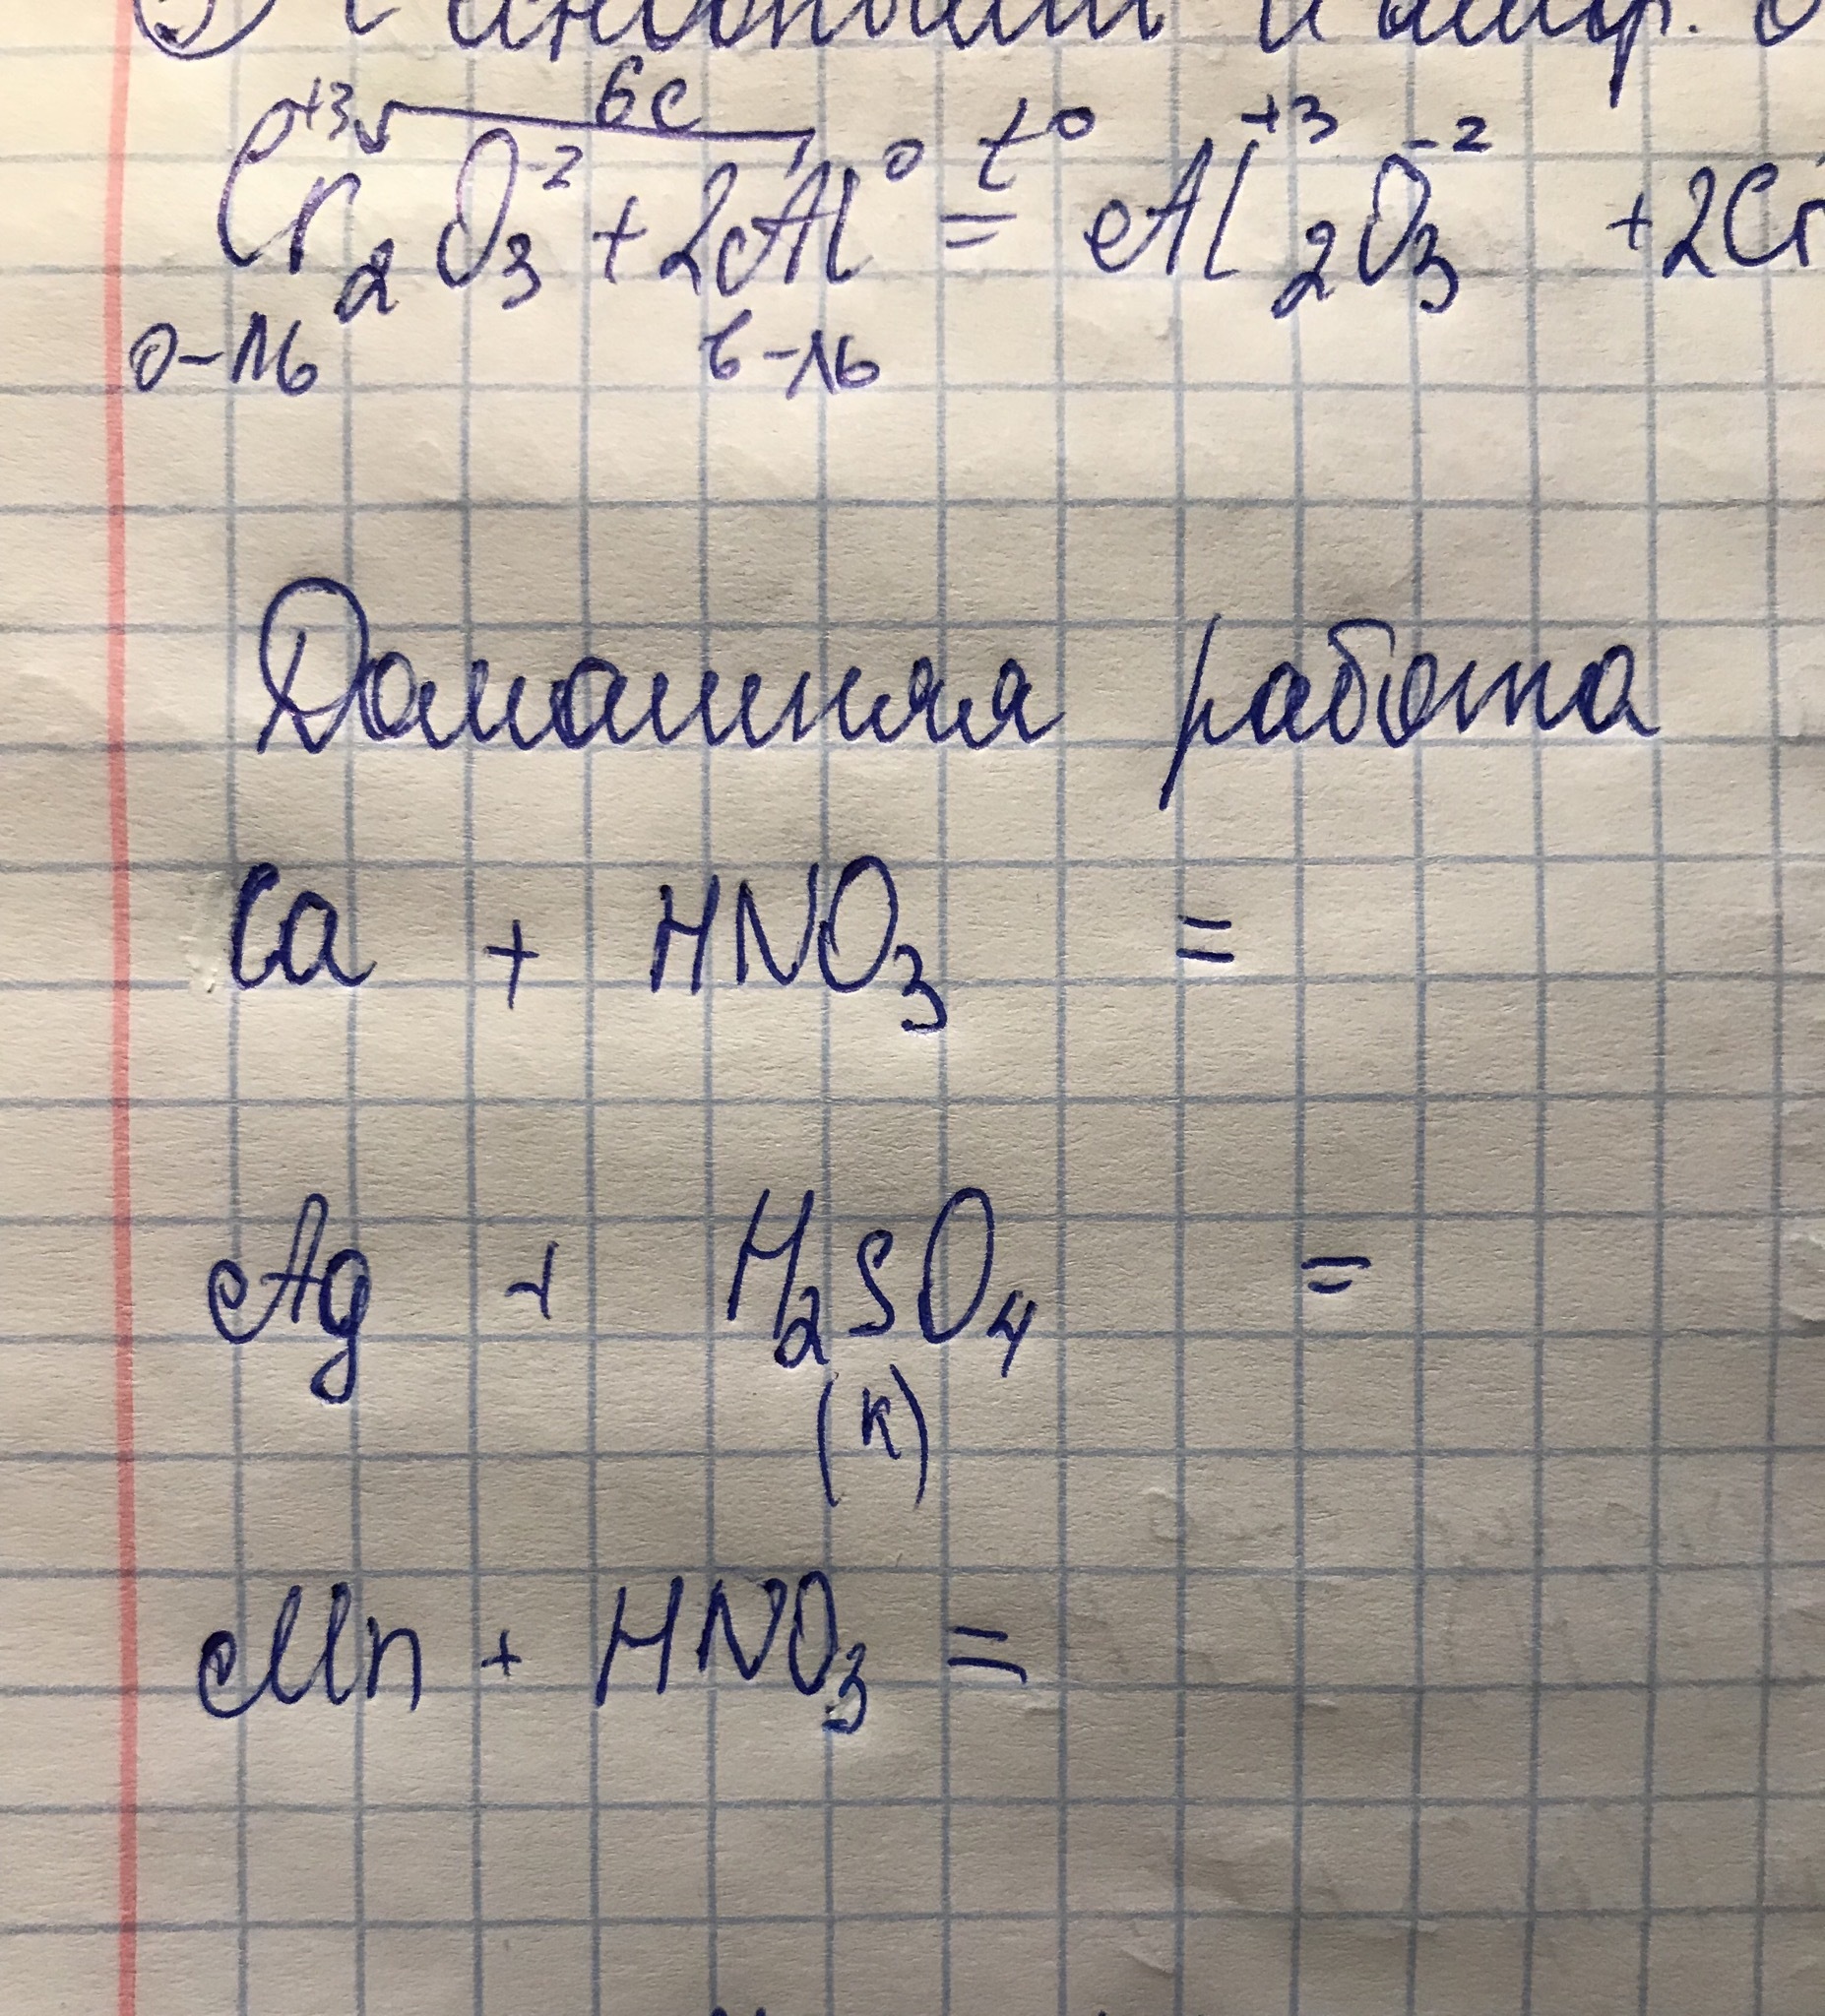 +3 6e
Cr₂O₃⁻² + 2Al⁰ =t⁰ Al₂⁺³O₃⁻² + 2Cr
о-ль в-ль
Домашняя работа
Ca + HNO₃ =
Ag + H₂SO₄ =
(к)
Mn + HNO₃ =